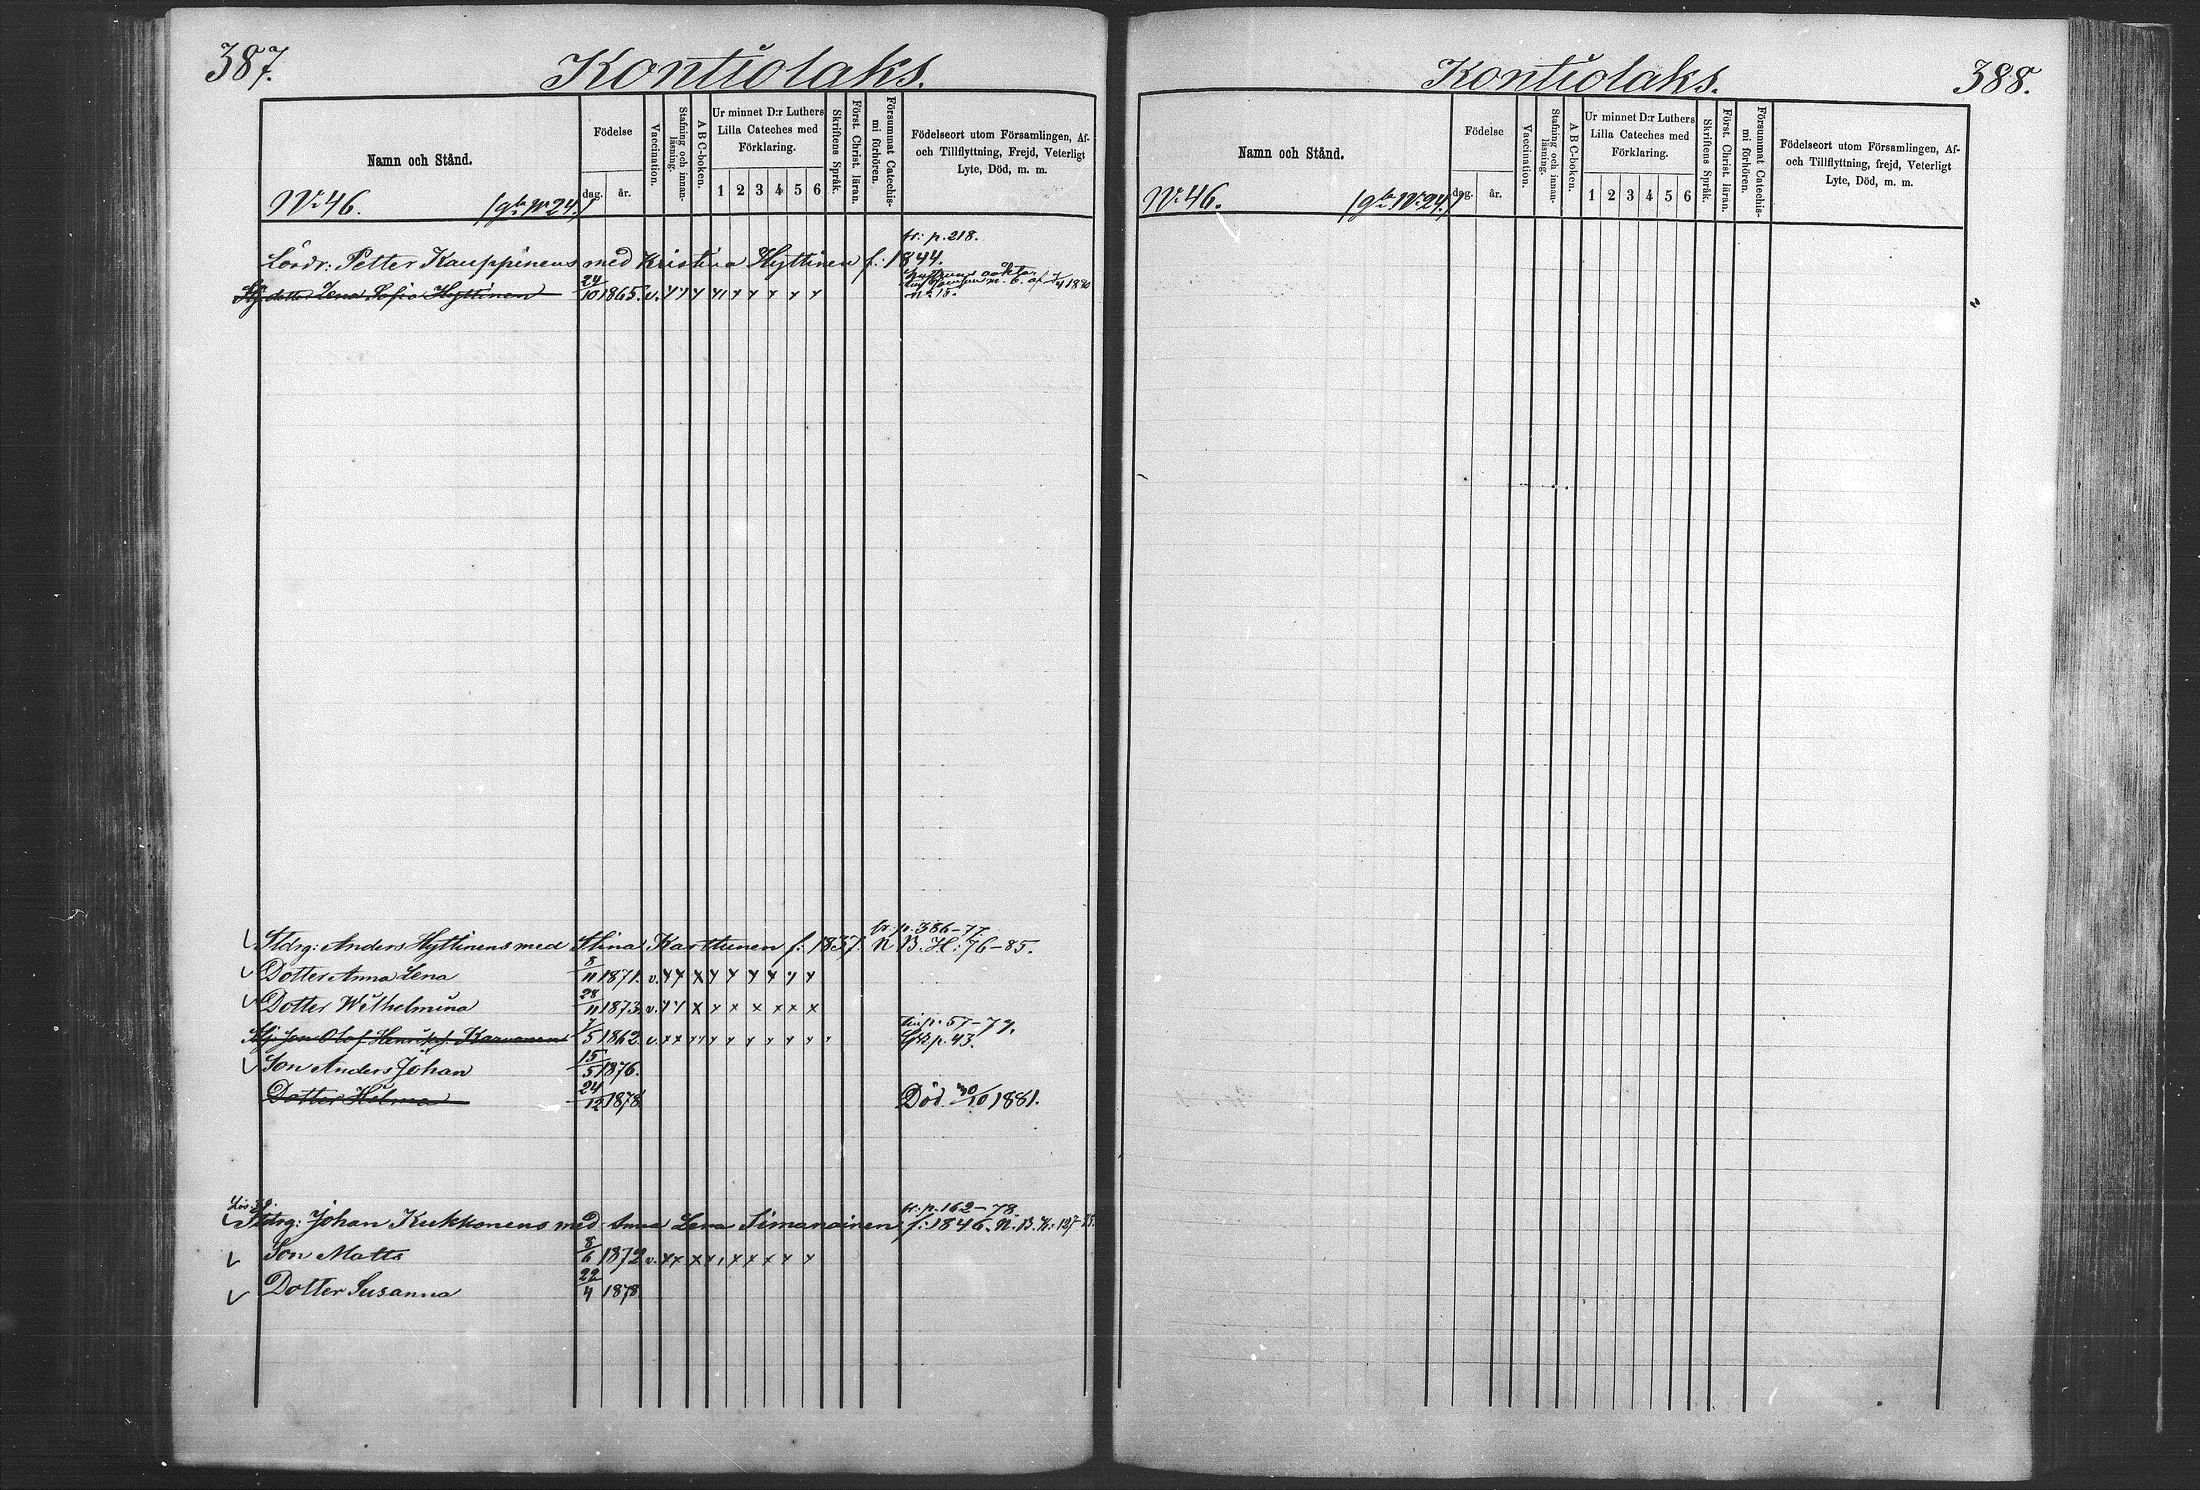 387.
Kontiolaks.
Namn och Stånd.
Födelse
dag. år.
Vaccination.
Stafning och innan-
läsning.
A B C-boken.
Ur minnet D:r Luthers
Lilla Cateches med
Förklaring.
1 2 3 4 5 6
Skriftens Språk.
Först. Christ. läran.
Försummat Catechis-
mi förhören.
Födelseort utom Församlingen, Af-
och Tillflyttning, Frejd, Veterligt
Lyte, Död, m. m.
N:46. (gla N:24.)
fr: p. 218.
Lösdr: Petter Kauppinens med Kristina Hyttinen f: 1844.
dotter Lena Sofia Hyttinen 24/10 1865. v.
fr: p. 386-77.
Stdrg: Anders Hyttinens med Stina Karttunen f: 1837. N. B. H: 76-85.
Dotter Anna Lena 8/11 1871. v.
Dotter Wilhelmina 28/11 1873. v.
p. 57-79.
Son Olof Henriksf. Kaarnanen 7/5 1862. v. p. 43.
Son Anders Johan 15/5 1876.
Dotter Helma 24/12 1878. Död 30/10 1881.
fr: p. 162-78.
Stdrg: Johan Kukkonens med Anna Lena Simanainen f: 1846. N. B. H: 127-85.
Son Matts 8/6 1872. v.
Dotter Susanna 22/4 1878.
388.
Kontiolaks.
Namn och Stånd.
Födelse
dag. år.
Vaccination.
Stafning och innan-
läsning.
A B C-boken.
Ur minnet D:r Luthers
Lilla Cateches med
Förklaring.
1 2 3 4 5 6
Skriftens Språk.
Först. Christ. läran.
Försummat Catechis-
mi förhören.
Födelseort utom Församlingen, Af-
och Tillflyttning, frejd, Veterligt
Lyte, Död, m. m.
N:46. (gla N:24.)